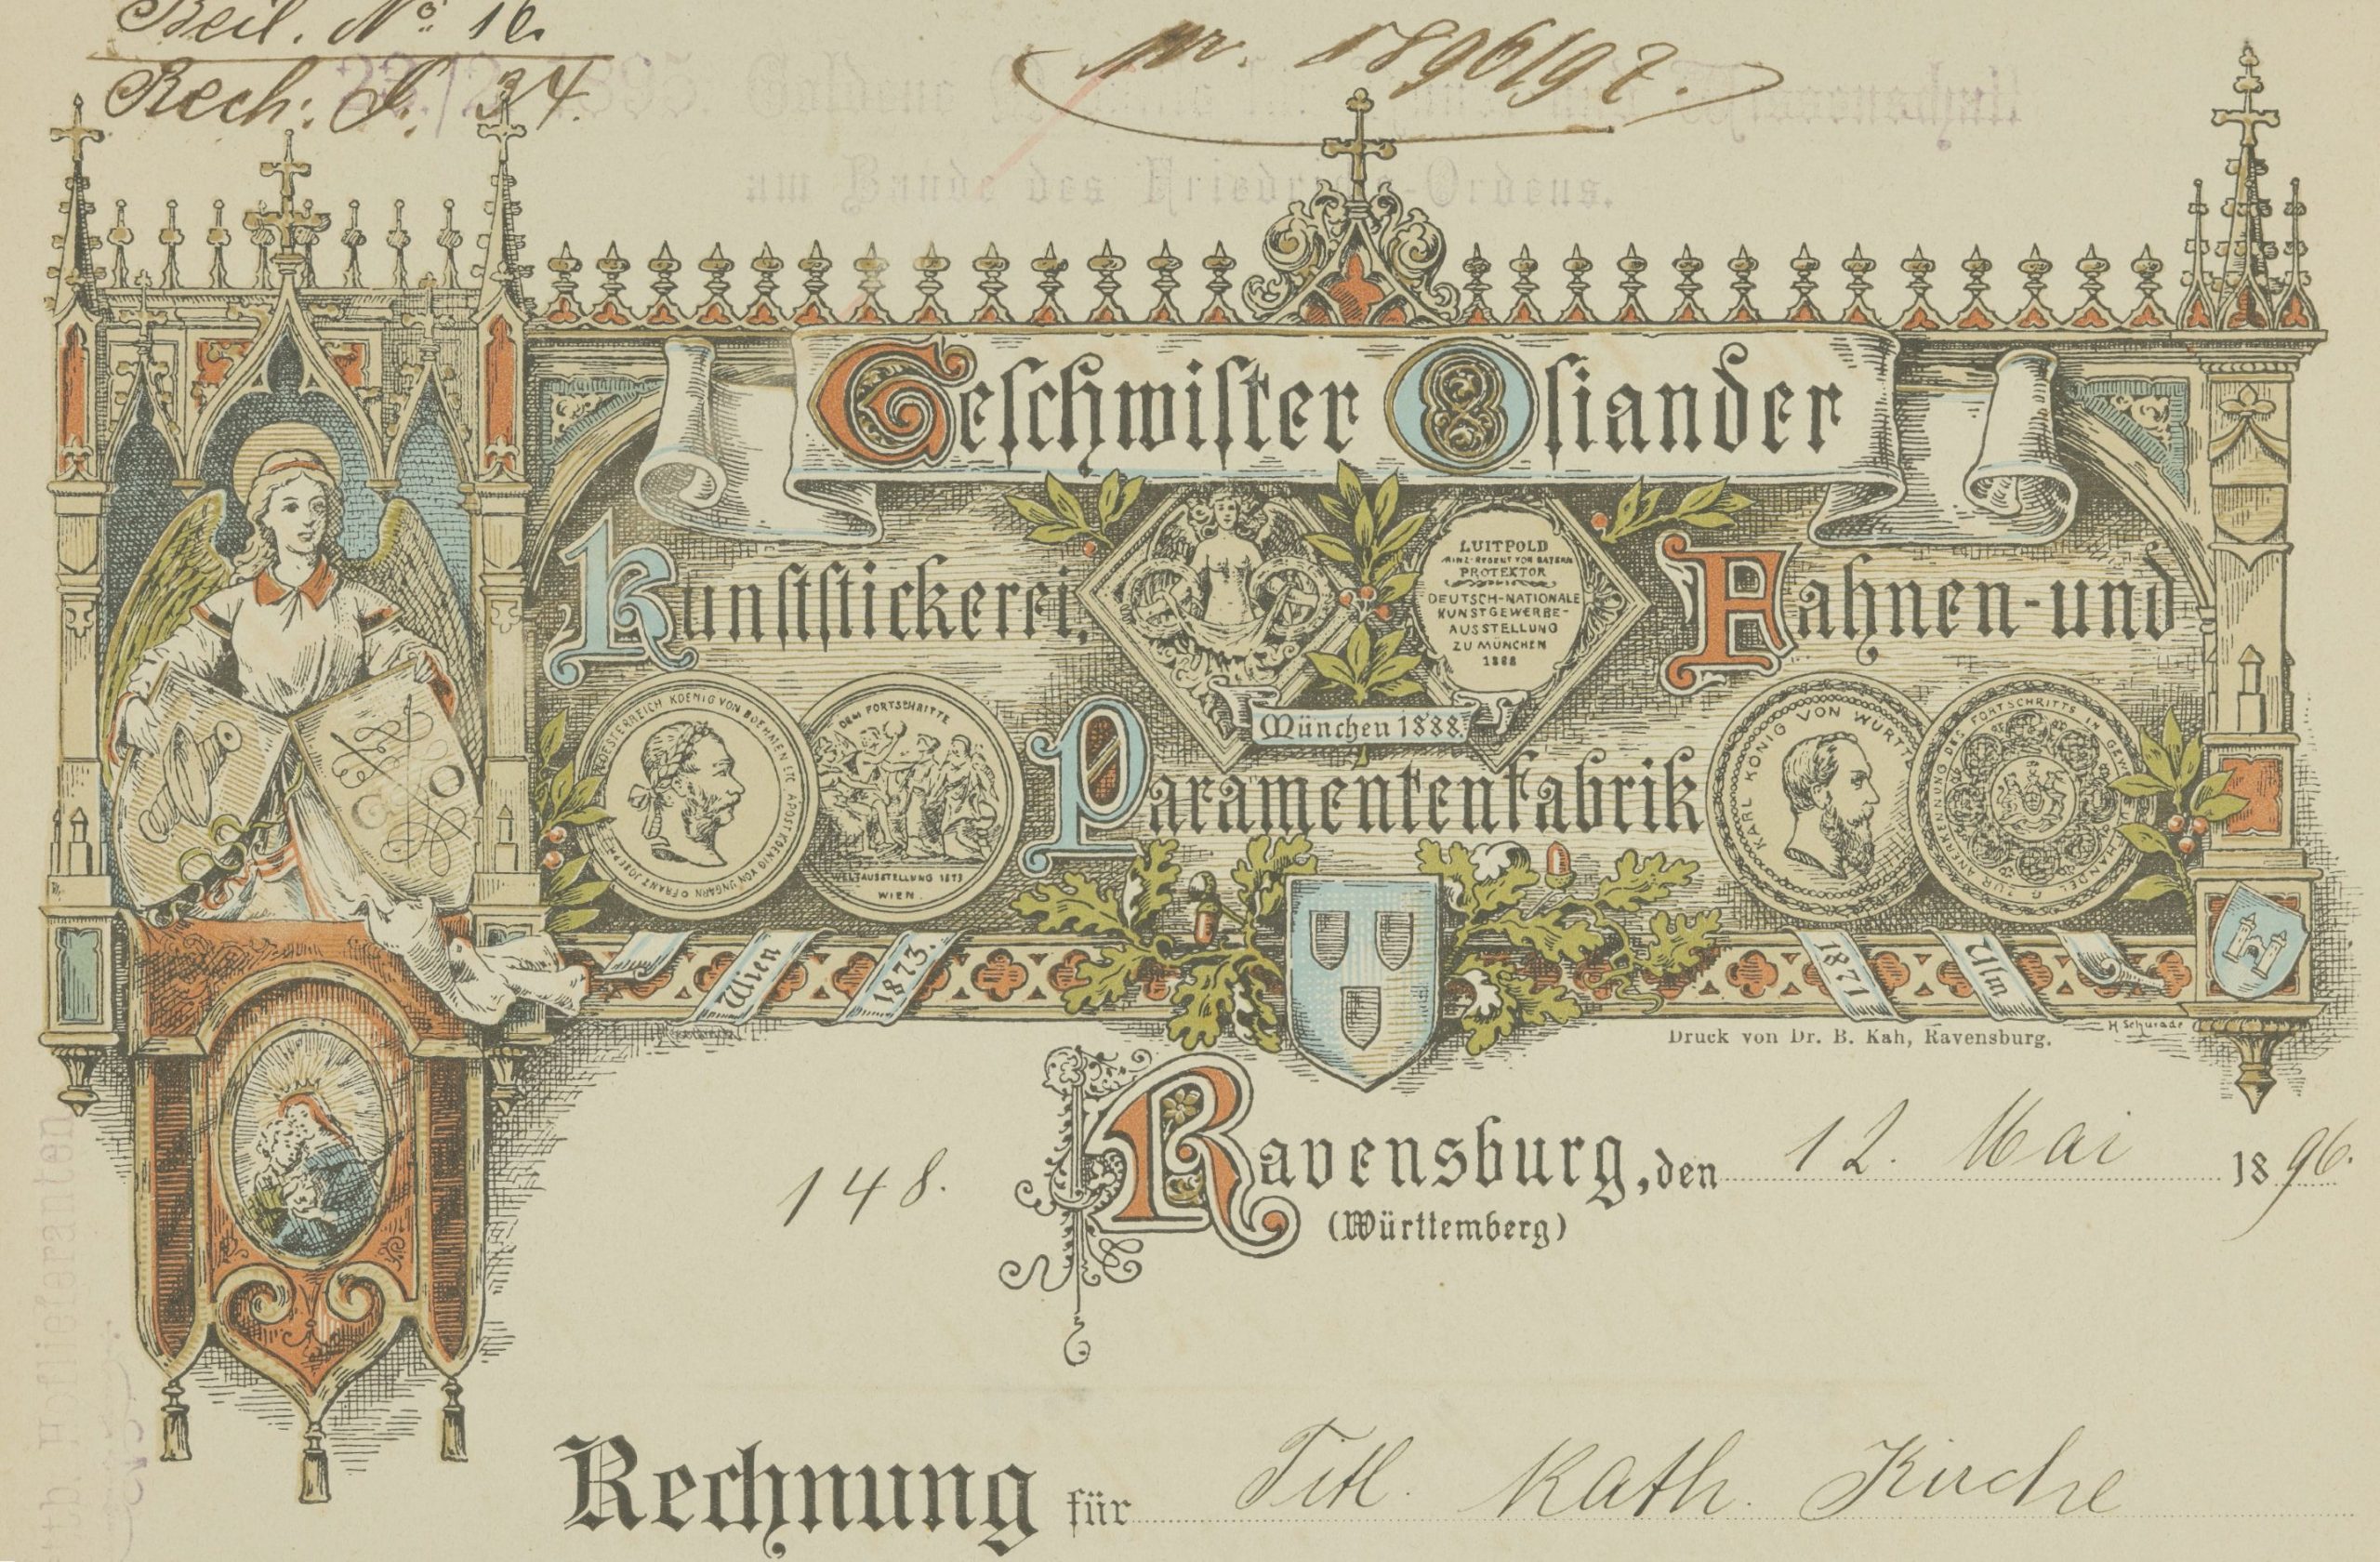 Beil. No. 16.
Rech: S. 34.
pr. 1896/97.
Geſchwiſter Oſiander
Kunſtſtickerei, Fahnen- und
Paramentenfabrik
LUITPOLD
PRINZ-REGENT VON BAYERN
PROTEKTOR
DEUTSCH-NATIONALE
KUNSTGEWERBE-
AUSSTELLUNG
ZU MÜNCHEN
1888
München 1888.
FRANZ JOSEPH I KAISER VON OESTERREICH KOENIG VON BOEHMEN ETC APOST KOENIG VON UNGARN
DEM FORTSCHRITTE
WELTAUSSTELLUNG 1873
WIEN.
KARL KÖNIG VON WÜRTT
ZUR ANERKENNUNG DES FORTSCHRITTS IN GEW. U. HANDEL
Wien 1873.
1871 Ulm
H. Schurade
Druck von Dr. B. Kah, Ravensburg.
148. Ravensburg, den 12. Mai 1896.
(Württemberg)
Rechnung für Titl. Kath. Kirche
am Bande des Friedrichs-Ordens.
Hoflieferanten